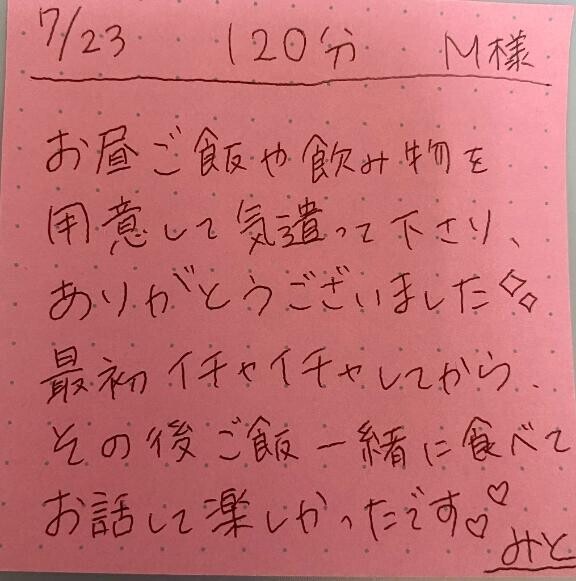 7/23 120分 M様
お昼ご飯や飲み物を
用意して気遣って下さり、
ありがとうございました
最初イチャイチャしてから、
その後ご飯一緒に食べて
お話して楽しかったです♡♡
みと